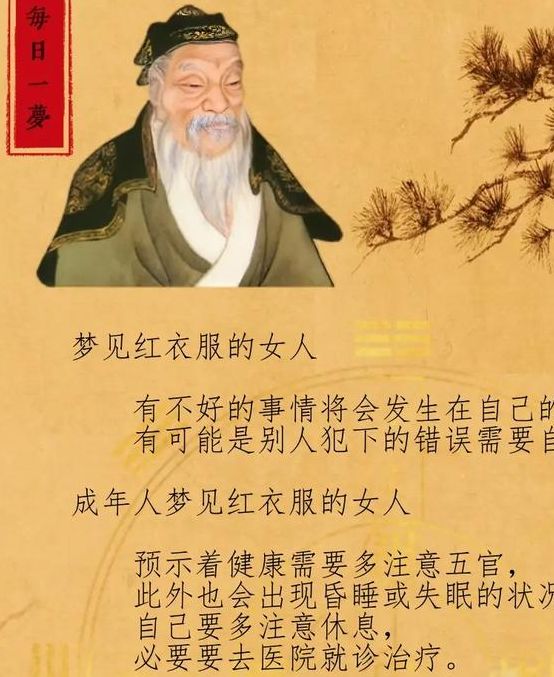 每日一夢
梦见红衣服的女人
有不好的事情将会发生在自己的
有可能是别人犯下的错误需要自
成年人梦见红衣服的女人
预示着健康需要多注意五官，
此外也会出现昏睡或失眠的状况
自己要多注意休息，
必要要去医院就诊治疗。